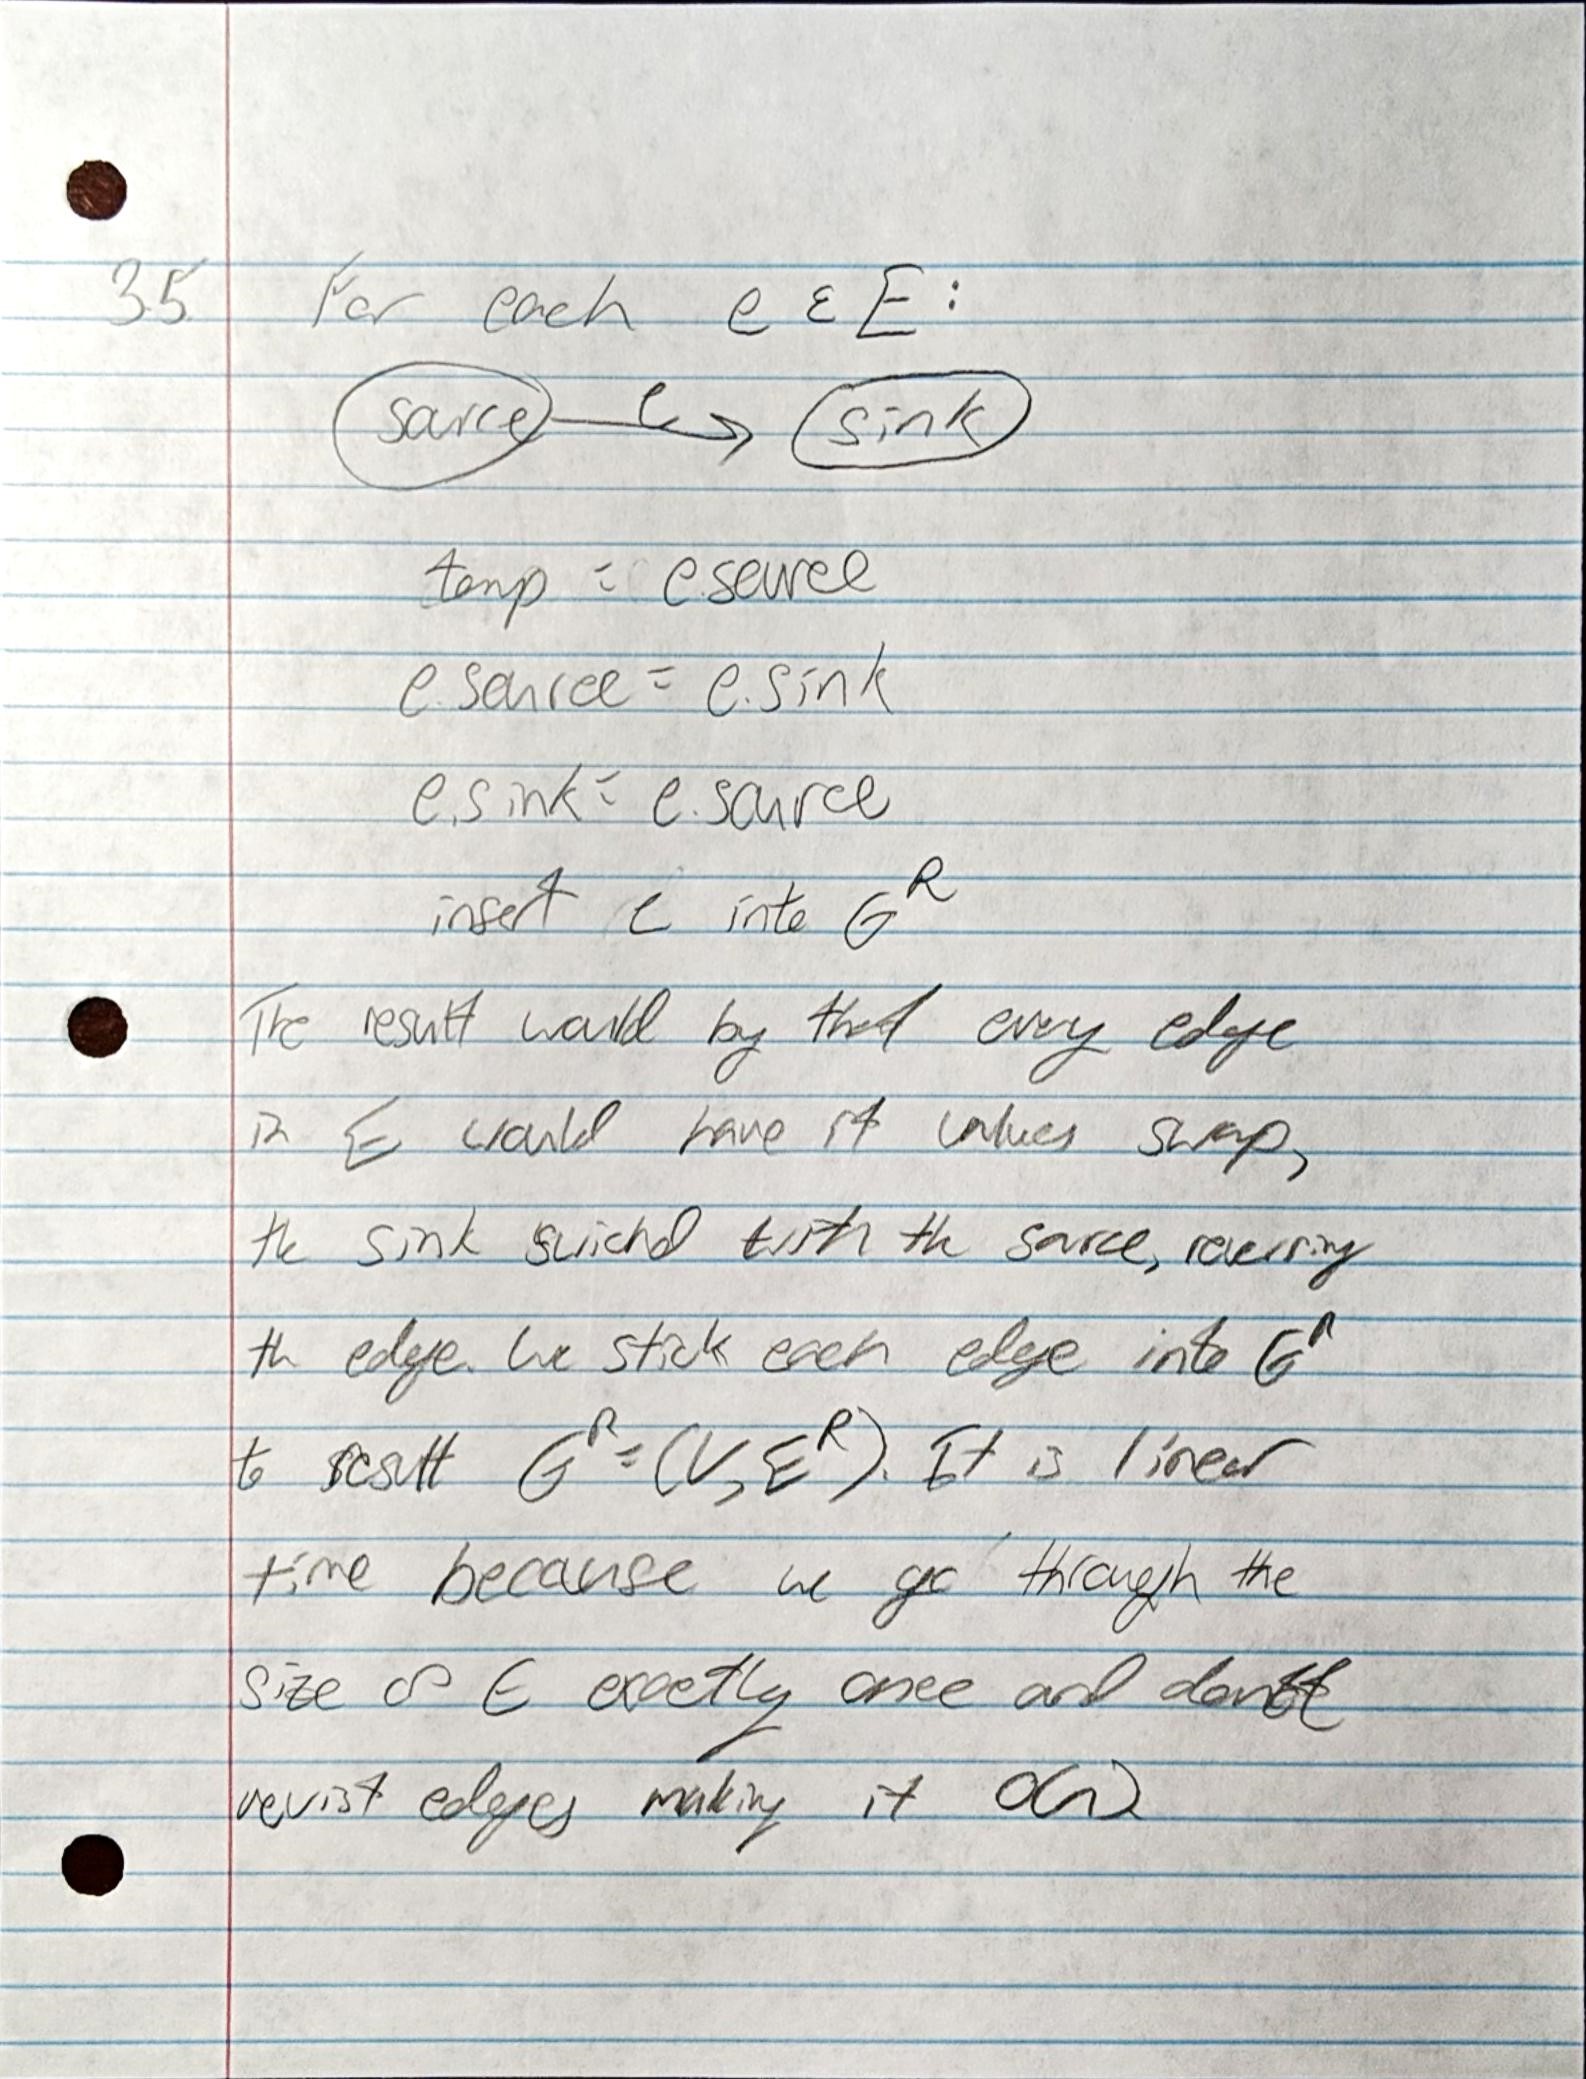 3.5 For each e ε E:
source e sink
temp = e.source
e.source = e.sink
e.sink = e.source
insert e into G^R
The result would by that every edge
in E would have it values swap,
the sink swichd with the source, reversing
th edge. We stick each edge into G^R
to result G^R = (V, E^R). It is linear
time because we go through the
size of E exactly once and don't
revist edges making it O(n)